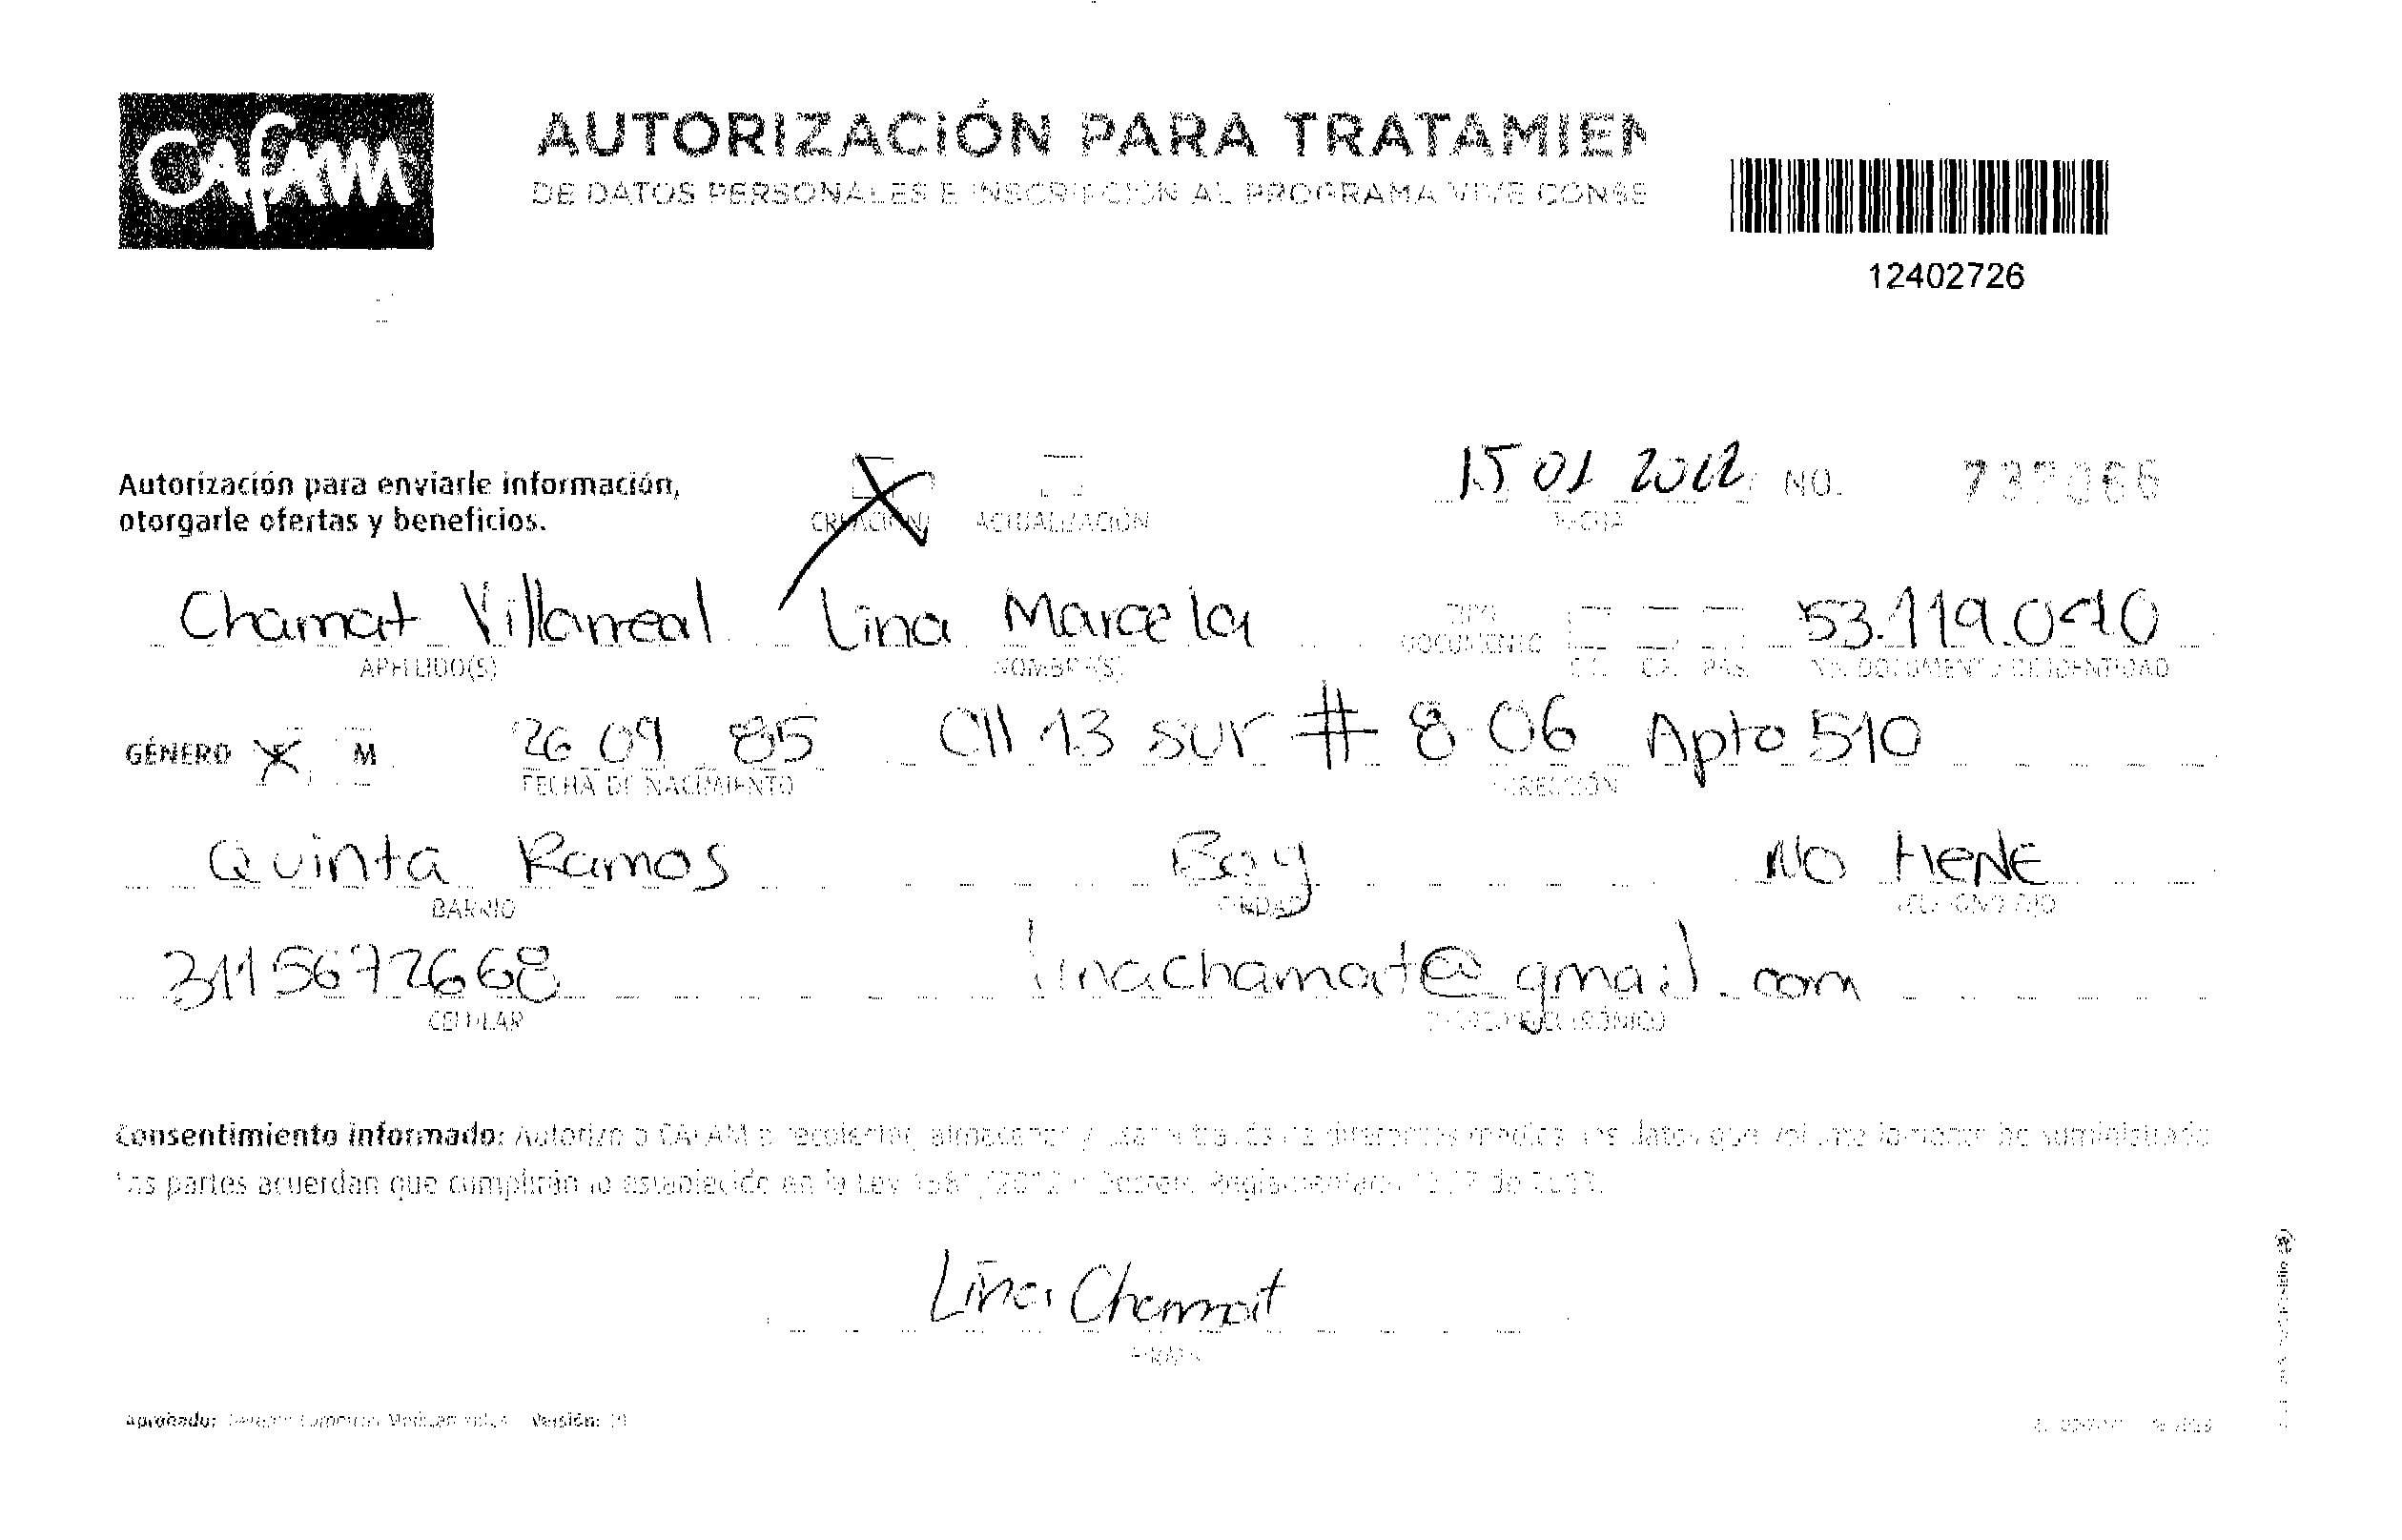 Cafam
AUTORIZACIÓN PARA TRATAMIEN
DE DATOS PERSONALES E INSCRIPCIÓN AL PROGRAMA VIVE CONSE
12402726
Autorización para enviarle información,
otorgarle ofertas y beneficios.
CREACIÓN ACTUALIZACIÓN
15 01 2022 NO.
FECHA
Chamat Villarreal Lina Marcela TIPO DOCUMENTO 53.119.090
APELLIDO(S) NOMBRE(S) C.C. C.E. PAS. NO. DOCUMENTO DE IDENTIDAD
GÉNERO F M 26 09 85 Cll 13 sur # 8-06 Apto 510
FECHA DE NACIMIENTO DIRECCIÓN
Quinta Ramos Bog No tiene
BARRIO CIUDAD TELÉFONO FIJO
3115672668 linachamat@gmail.com
CELULAR CORREO ELECTRÓNICO
Consentimiento informado: Autorizo a CAFAM a recolectar, almacenar y usar a través de diferentes medios, los datos que voluntariamente he suministrado
Las partes acuerdan que cumplirán lo establecido en la Ley 1581/2012 y Decreto Reglamentario 1377 de 2013.
Lina Chamat
FIRMA
Aprobado: Versión: 01